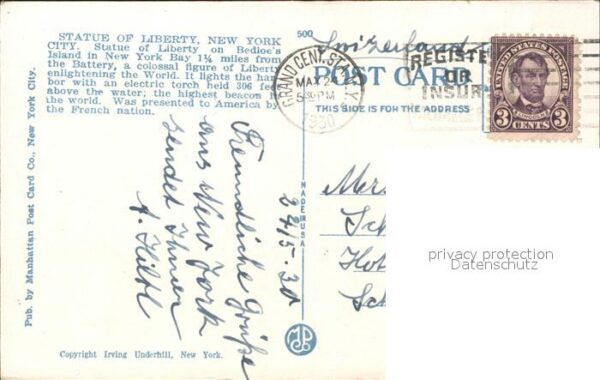 STATUE OF LIBERTY, NEW YORK
CITY. Statue of Liberty on Bedloe's
Island in New York Bay 1¾ miles from
the Battery, a colossal figure of Liberty
enlightening the World. It lights the har-
bor with an electric torch held 306 feet
above the water; the highest beacon in
the world. Was presented to America by
the French nation.
Pub. by Manhattan Post Card Co., New York City.
Copyright Irving Underhill, New York.
500
Switzerland
POST CARD
THIS SIDE IS FOR THE ADDRESS
GRAND CENT. STA. N.Y.
MAY
5 30 PM
1930
REGISTE
OR
INSUR
UNITED STATES POSTAGE
LINCOLN
3 CENTS 3
MADE IN USA
24/5.30
Freundliche Grüße
aus New York
sendet Ihnen
Sch
Hot
Sch
privacy protection
Datenschutz